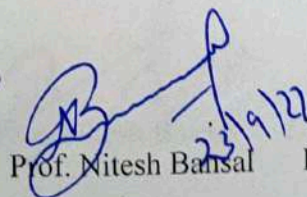 23/9/22
Prof. Nitesh Bansal